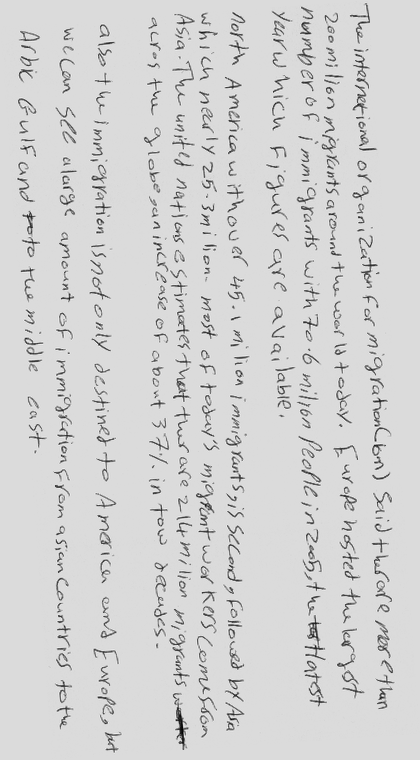 The international organization for migration(iom) said therare more than
200 million migrants around the world today. Europe hosted the largest
number of immigrants with 70.6 million people in 2005, the latest
year which figures are available.
north America with over 45.1 milion immigrants, is second, followed by Asia
which nearly 25.3 milion. most of today's migrant workers come from
Asia. The united nations estimates that thur are 214 milion migrants
acros the globe, an increase of about 37% in tow decades.
also the immigration is not only destined to America and Europe, but
we can see alarge amount of immigration from asian countries to the
Arbic Gulf and to the middle east.